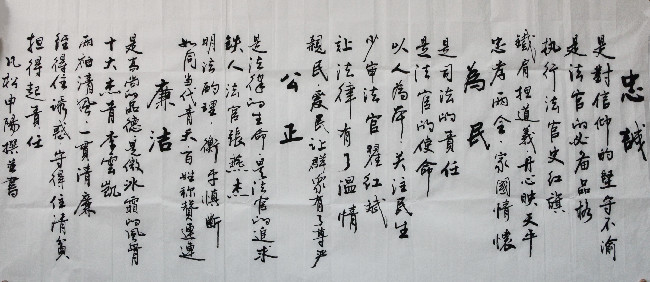 忠誠
是對信仰的堅守不渝
是法官的必备品格
执行法官史红旗
鐵肩担道義丹心映天平
忠孝两全家國情懷
為民
是司法的責任
是法官的使命
以人為本关注民生
少审法官翟红斌
让法律有了温情
親民爱民让群众有了尊严
公正
是法律的生命是法官的追求
铁人法官張燕杰
明法酌理衡平慎断
如同当代青天百姓称赞連連
廉洁
是高尚的品德是傲冰霜的風骨
十大杰青李雲凱
两袖清風一貫清廉
经得住诱惑守得住清貧
担得起責任
凡松申陽撰并書